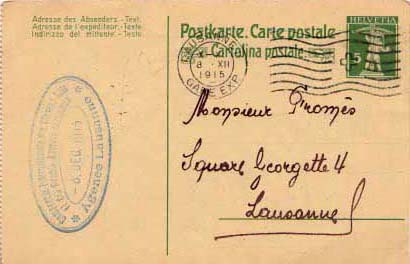 Adresse des Absenders. - Text.
Adresse de l'expéditeur. - Texte.
Indirizzo del mittente. - Testo.
Postkarte. Carte postale
Cartolina postale
HELVETIA
5
8 · XII
1915
GARE EXP.
- 8 DEC 1915
Lausanne
Monsieur Fromès
Square Georgette 4
Lausanne